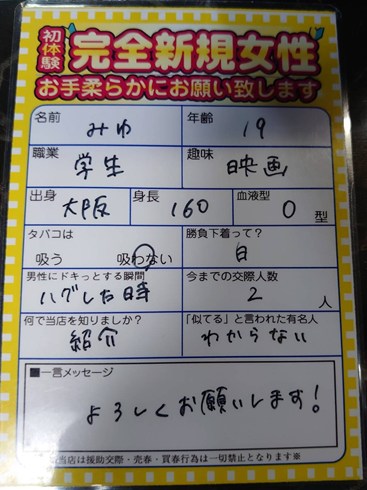 初体験
完全新規女性
お手柔らかにお願い致します
名前 みゆ 年齢 19
職業 学生 趣味 映画
出身 大阪 身長 160 血液型 O 型
タバコは 勝負下着って?
吸う 吸わない 白
男性にドキっとする瞬間 今までの交際人数
ハグした時 2 人
何で当店を知りましたか? 「似てる」と言われた有名人
紹介 わからない
■一言メッセージ
よろしくお願いします!
当店は援助交際・売春・買春行為は一切禁止となります※